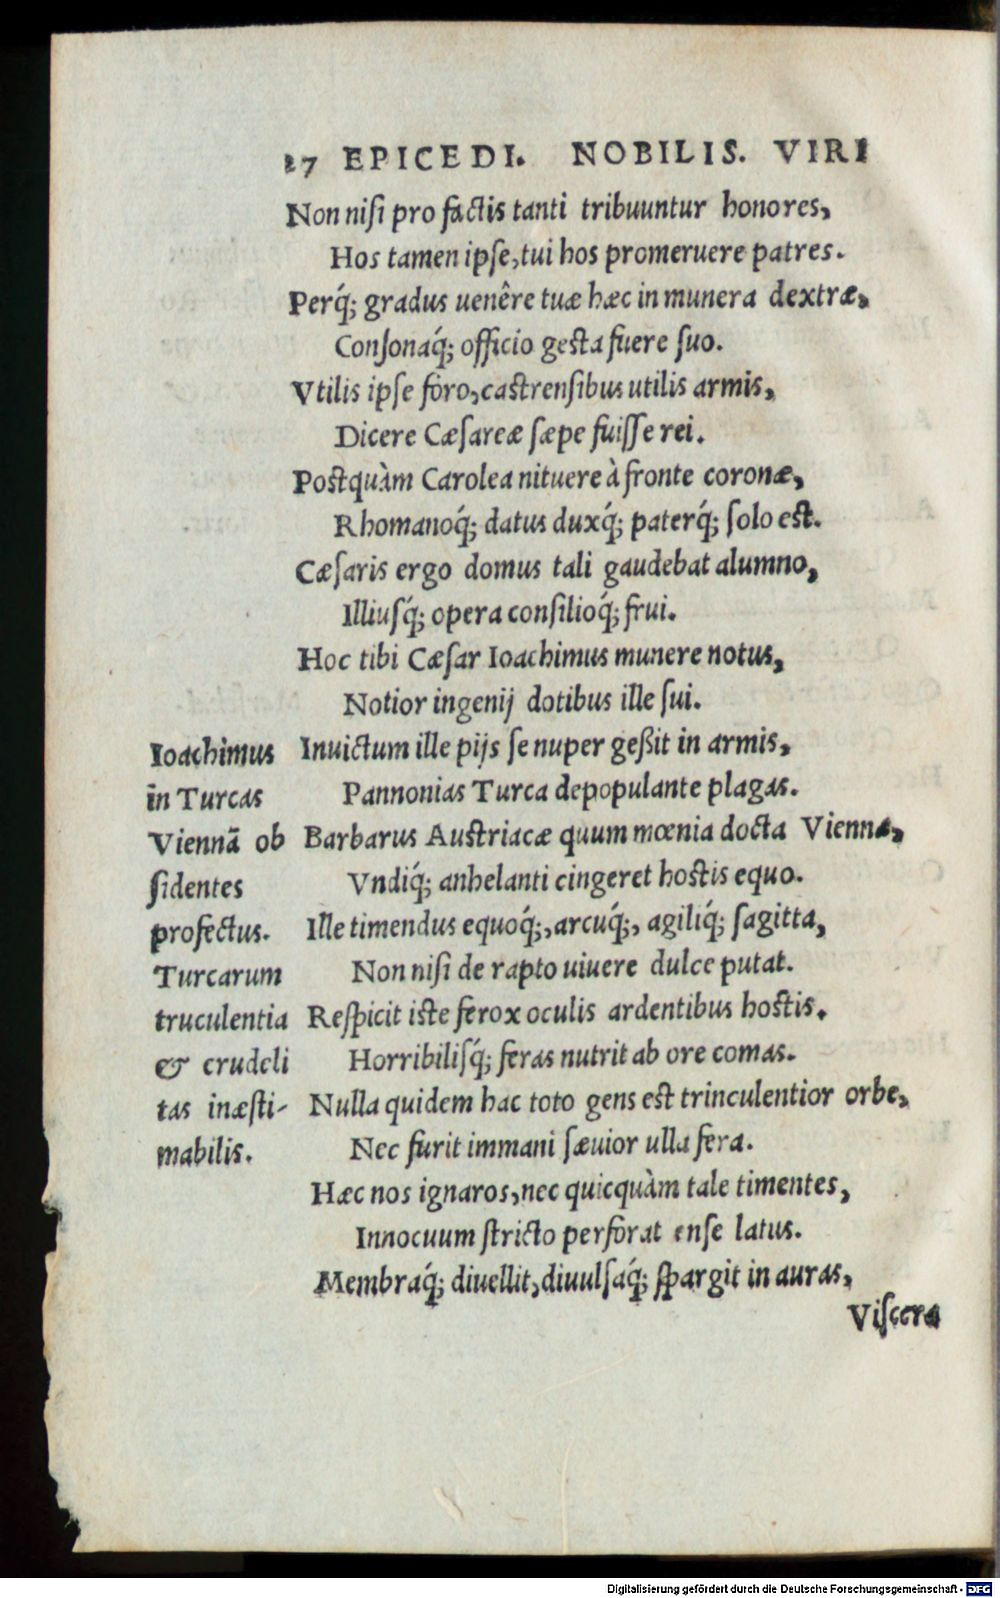 27 EPICEDI. NOBILIS. VIRI
Non niſi pro factis tanti tribuuntur honores,
Hos tamen ipſe, tui hos promeruere patres.
Perq́; gradus uenêre tuæ hæc in munera dextræ,
Conſonaq́; officio geſta fuere ſuo.
Vtilis ipſe foro, caſtrenſibus utilis armis,
Dicere Cæſareæ ſæpe fuiſſe rei.
Poſtquàm Carolea nituere à fronte coronæ,
Rhomanoq́; datus duxq́; paterq́; ſolo eſt.
Cæſaris ergo domus tali gaudebat alumno,
Illiuſq́; opera conſilioq́; frui.
Hoc tibi Cæſar Ioachimus munere notus,
Notior ingenij dotibus ille ſui.
Inuictum ille pijs ſe nuper geßit in armis,
Pannonias Turca depopulante plagas.
Barbarus Auſtriacæ quum mœnia docta Viennæ,
Vndiq́; anhelanti cingeret hoſtis equo.
Ille timendus equoq́;, arcuq́;, agiliq́; ſagitta,
Non niſi de rapto uiuere dulce putat.
Reſpicit iſte ferox oculis ardentibus hoſtis.
Horribiliſq́; feras nutrit ab ore comas.
Nulla quidem hac toto gens eſt trinculentior orbe,
Nec furit immani ſæuior ulla fera.
Hæc nos ignaros, nec quicquàm tale timentes,
Innocuum ſtricto perforat enſe latus.
Membraq́; diuellit, diuulſaq́; ſpargit in auras,
Viſcera
Ioachimus
in Turcas
Viennā ob
ſidentes
profectus.
Turcarum
truculentia
& crudeli
tas inæſti-
mabilis.
Digitalisierung gefördert durch die Deutsche Forschungsgemeinschaft - DFG